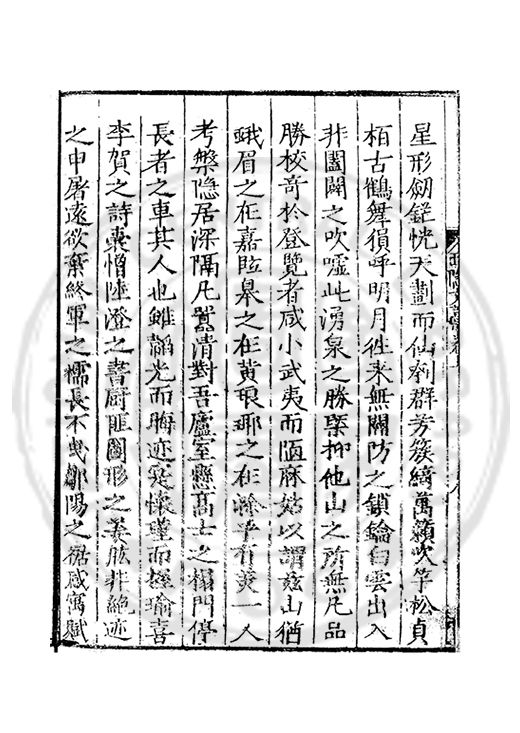 星形劒鋩恍天劃而仙刳群芳簇綺萬籟吹竽松貞
栢古鶴舞猿呼明月徃来無關防之鎖鑰白雲出入
非闔闢之吹嘘此湧泉之勝槩抑他山之所無凡品
勝校竒於登覽者咸小武夷而陋麻姑以謂兹山猶
峨眉之在嘉眩皐之在黄琅琊之在滁乎有美一人
考槃隐居深隔凡囂清對吾廬室懸髙士之榻門停
長者之車其人也雖韜光而晦迹寔懷瑾而握瑜喜
李賀之詩囊憎陸澄之書厨匪圖形之姜肱非絶迹
之申屠遠欲棄終軍之襦長不曳鄒陽之裾咸寓賦